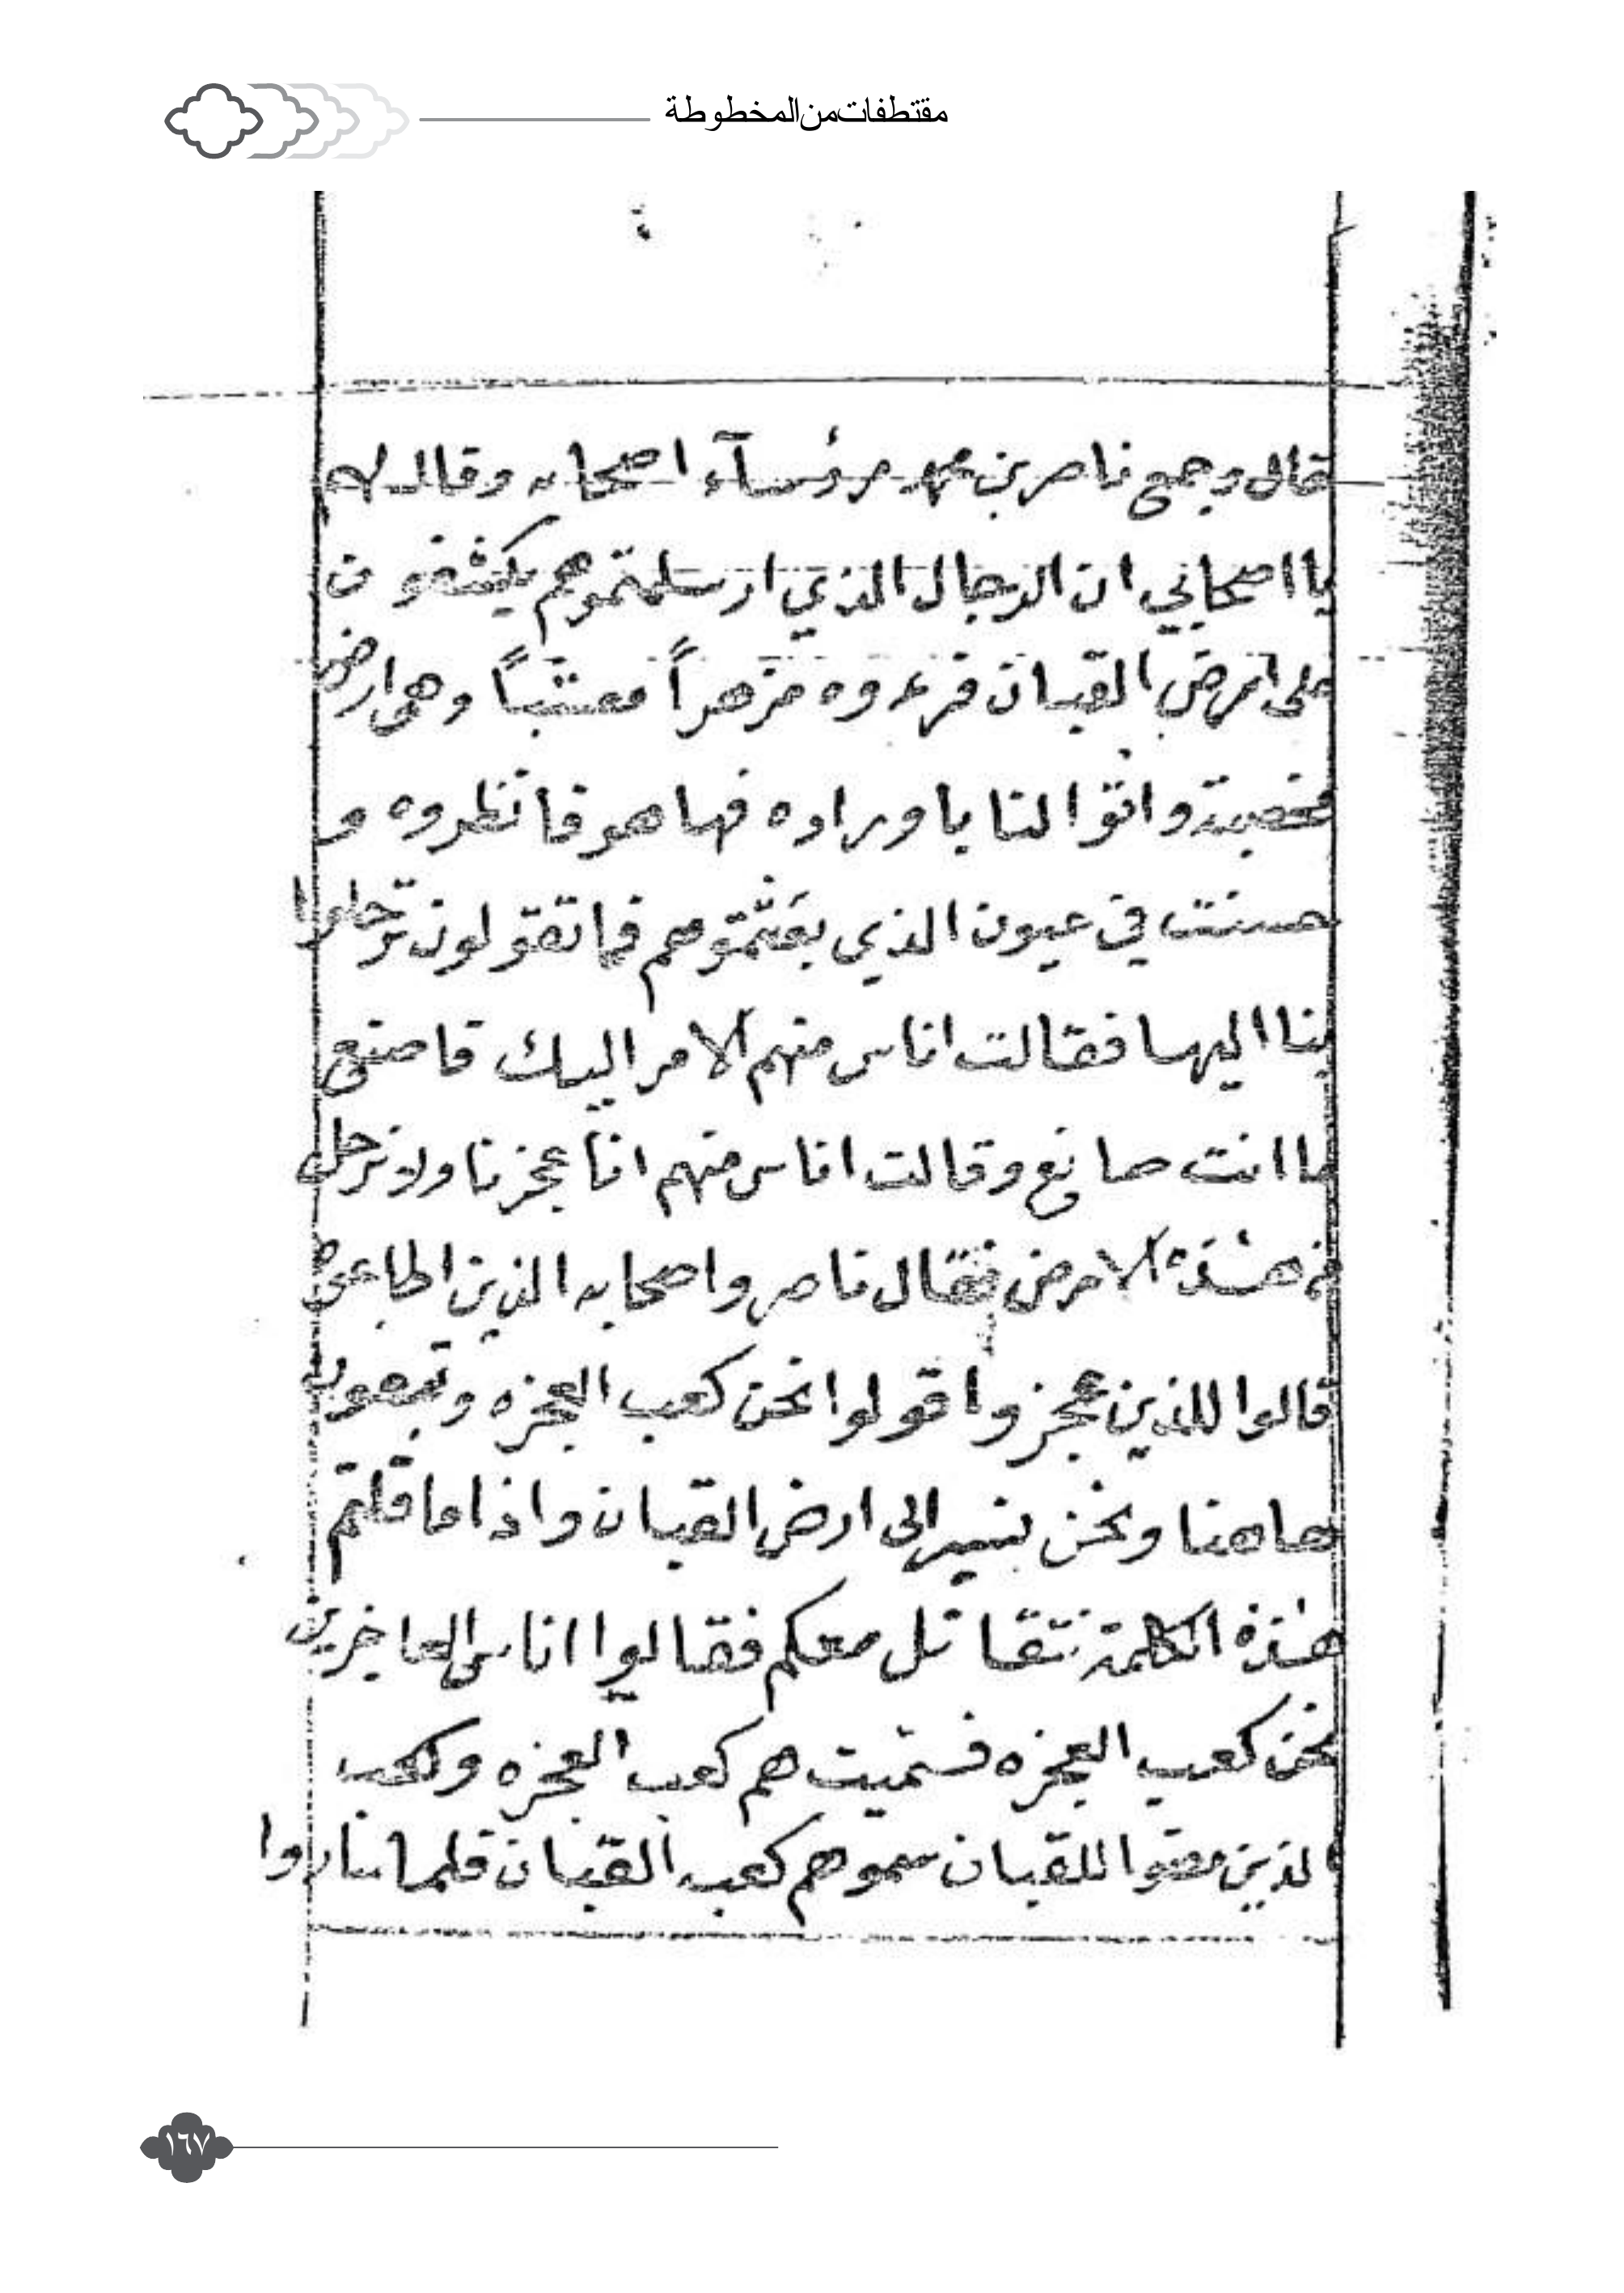 مقتطفات من المخطوطة
قال وجمع ناصر بن محمد رؤسآء اصحابه وقال لهم
يا اصحابي ان الرجال الذي ارسلتموهم يكشفون
على ارض القبان فرءوه مزهراً معشباً وهي ارض
مخصبة واتوا لنا باوراده فها هو فانظروه و
حسنت في عيون الذي بعثتموهم فما تقولون ترحلوا
بنا اليها فقالت اناس منهم الامر اليك فاصنع
ما انت صانع وقالت اناس منهم انا عجزنا ولا نرحل
من هٰذه الارض فقال ناصر واصحابه الذين
قالوا للذين عجزوا قولوا نحن كعب العجزه
هاهنا ونحن نسير الى ارض القبان واذا ما قلتم
هٰذه الكلمة نتقاتل معكم فقالوا اناس العاجزين
نحن كعب العجزه فسميت هم كعب العجزه وكعب
الذين مضوا للقبان سموهم كعب القبان فلما ساروا
١٦٧